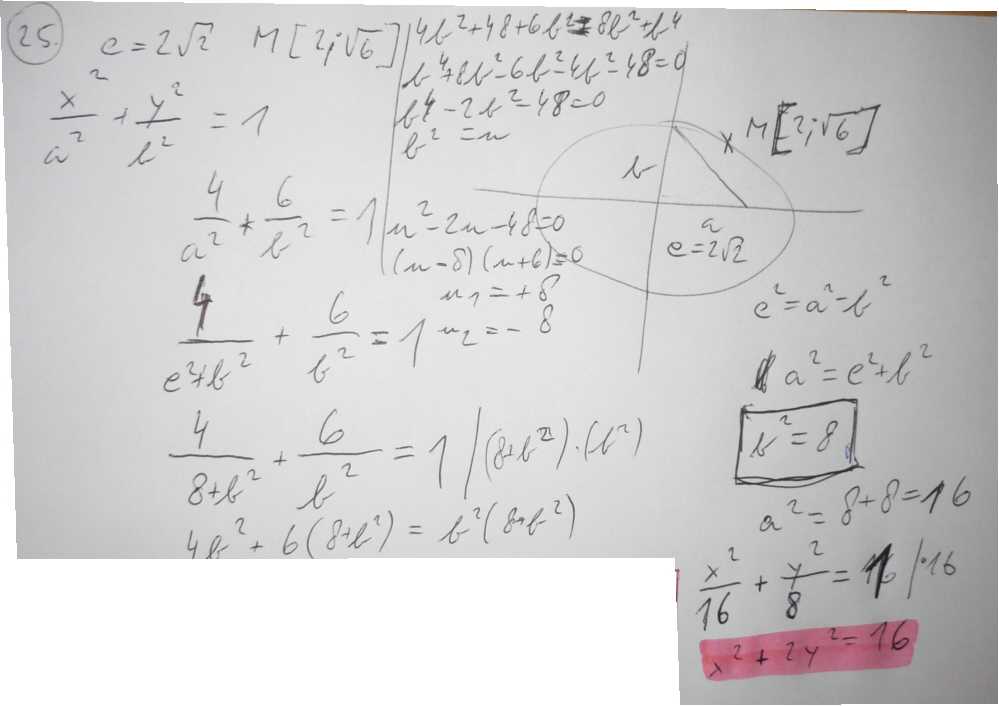 25. e = 2√2 M [2; √6]
x²/a² + y²/b² = 1
4/a² + 6/b² = 1
4/(e²+b²) + 6/b² = 1
4/(8+b²) + 6/b² = 1 /(8+b²)·(b²)
4b² + 6(8+b²) = b²(8+b²)
4b²+48+6b² = 8b²+b⁴
b⁴+8b²-6b²-4b²-48=0
b⁴-2b²-48=0
b² = u
u²-2u-48=0
(u-8)(u+6)=0
u₁ = +8
u₂ = -8
x M [2; √6]
b
a
e=2√2
e² = a²-b²
a² = e²+b²
b² = 8
a² = 8+8=16
x²/16 + y²/8 = 1 /·16
x² + 2y² = 16